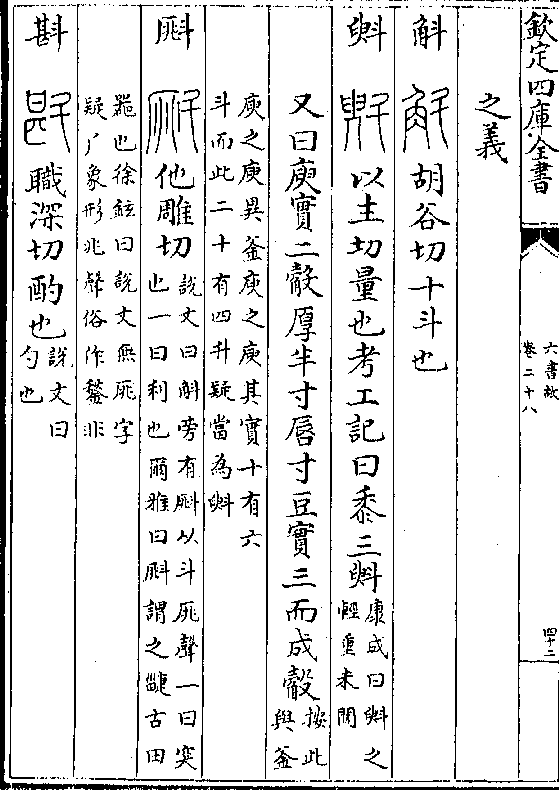 欽定四庫全書
六書故
卷二十八
四十二
之義
斛 胡谷切十斗也
㪺 以主切量也考工記曰桼三㪺康成曰㪺之
輕重未聞
又曰庾實二觳厚半寸脣寸豆實三而成觳按此
與釡
庾之庾異釡庾之庾其實十有六
斗而此二十有四升疑當為㪺
㪶 他雕切說文曰斛旁有㪶以斗𠩓聲一曰突
也一曰利也爾雅曰㪶謂之䠫古田
器也徐鉉曰說文無𠩓字
疑厂象形兆聲俗作鍫非
斟 職深切酌也說文曰
勺也